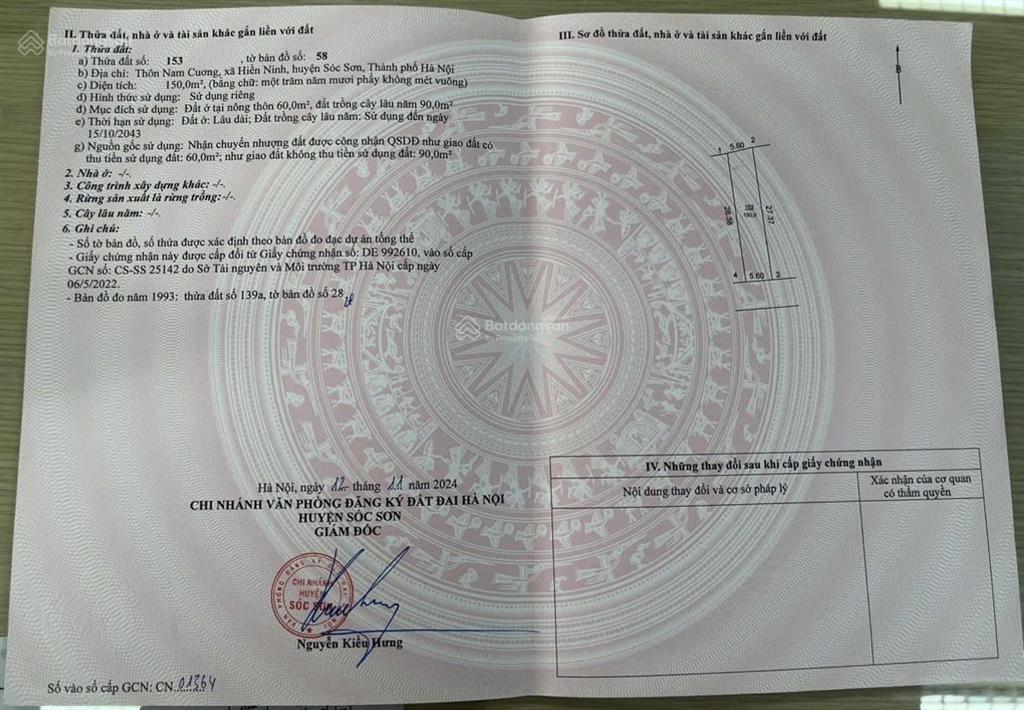 II. Thửa đất, nhà ở và tài sản khác gắn liền với đất
1. Thửa đất:
a) Thửa đất số: 153 , tờ bản đồ số: 58
b) Địa chỉ: Thôn Nam Cương, xã Hiền Ninh, huyện Sóc Sơn, Thành phố Hà Nội
c) Diện tích: 150,0m², (bằng chữ: một trăm năm mươi phẩy không mét vuông)
d) Hình thức sử dụng: Sử dụng riêng
đ) Mục đích sử dụng: Đất ở tại nông thôn 60,0m², đất trồng cây lâu năm 90,0m²
e) Thời hạn sử dụng: Đất ở: Lâu dài; Đất trồng cây lâu năm: Sử dụng đến ngày
15/10/2043
g) Nguồn gốc sử dụng: Nhận chuyển nhượng đất được công nhận QSDĐ như giao đất có
thu tiền sử dụng đất: 60,0m²; như giao đất không thu tiền sử dụng đất: 90,0m²
2. Nhà ở: -/-.
3. Công trình xây dựng khác: -/-.
4. Rừng sản xuất là rừng trồng: -/-.
5. Cây lâu năm: -/-.
6. Ghi chú:
- Số tờ bản đồ, số thửa được xác định theo bản đồ đo đạc dự án tổng thể
- Giấy chứng nhận này được cấp đổi từ Giấy chứng nhận số: DE 992610, vào sổ cấp
GCN số: CS-SS 25142 do Sở Tài nguyên và Môi trường TP Hà Nội cấp ngày
06/5/2022.
- Bản đồ đo năm 1993: thửa đất số 139a, tờ bản đồ số 28
Hà Nội, ngày 12 tháng 11 năm 2024
CHI NHÁNH VĂN PHÒNG ĐĂNG KÝ ĐẤT ĐAI HÀ NỘI
HUYỆN SÓC SƠN
GIÁM ĐỐC
CHI NHÁNH
HUYỆN
SÓC SƠN
Nguyễn Kiều Hưng
Số vào sổ cấp GCN: CN 01364
III. Sơ đồ thửa đất, nhà ở và tài sản khác gắn liền với đất
B
1 5.60 2
26.38
150.0
27.37
4 5.60 3
Batdongsan
by PropertyGuru
IV. Những thay đổi sau khi cấp giấy chứng nhận
Nội dung thay đổi và cơ sở pháp lý
Xác nhận của cơ quan
có thẩm quyền